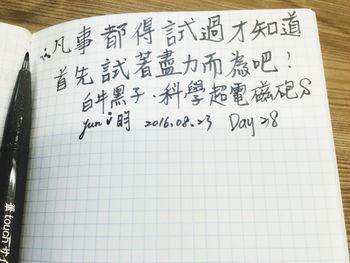 ∴凡事都得試過才知道
首先試著盡力而為吧！
白井黑子．科學超電磁砲S
yun i 昀 2016.08.23 Day 28
touch